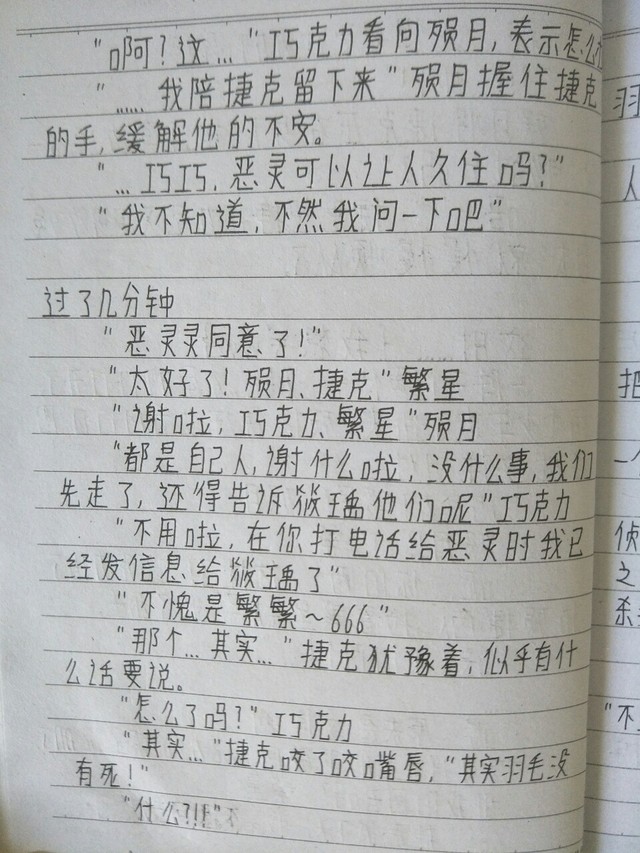 "啊?这…"巧克力看向殒月,表示怎么
"……我陪捷克留下来"殒月握住捷克
的手,缓解他的不安。
"…巧巧,恶灵可以让人久住吗?"
"我不知道,不然我问一下吧"
过了几分钟
"恶灵灵同意了!"
"太好了!殒月、捷克"繁星
"谢啦,巧克力、繁星"殒月
"都是自己人,谢什么啦,没什么事,我们
先走了,还得告诉狻瑀他们呢"巧克力
"不用啦,在你打电话给恶灵时我已
经发信息给狻瑀了"
"不愧是繁繁~666"
"那个…其实…"捷克犹豫着,似乎有什
么话要说。
"怎么了吗?"巧克力
"其实…"捷克咬了咬嘴唇,"其实羽毛没
有死!"
"什么?!!"
羽
人
把
一个
侦
之
杀
"不